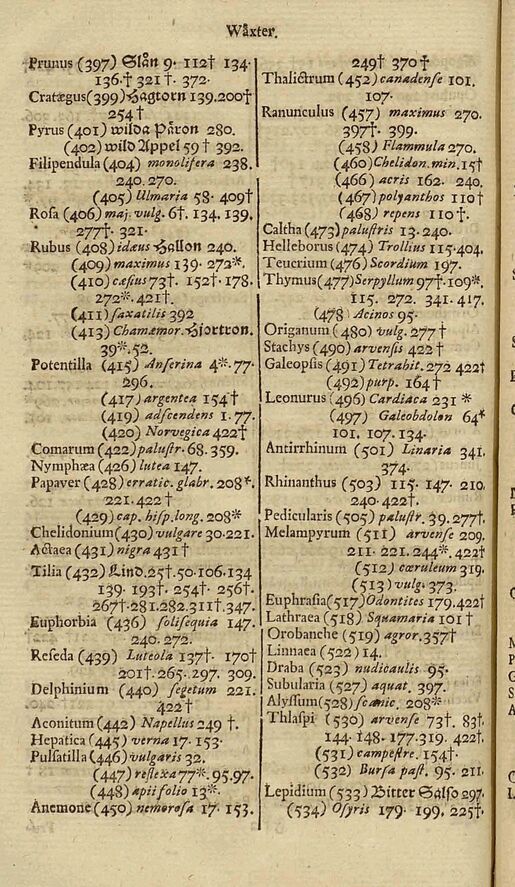 Wåxter.
Prunus (397) Slån 9. 112† 134.
136.† 321†. 372.
Cratægus(399) Hagtorn 139.200†
254†
Pyrus (401) wilda Päron 280.
(402) wild Appel 59† 392.
Filipendula (404) monolifera 238.
240. 270.
(405) Ulmaria 58. 409†
Rosa (406) maj. vulg. 6†. 134. 139.
277†. 321.
Rubus (408) idæus Hallon 240.
(409) maximus 139. 272*.
(410) cæsius 73†. 152†. 178.
272*. 421†.
(411) saxatilis 392
(413) Chamæmor. Hjortron.
39*. 52.
Potentilla (415) Anserina 4*. 77.
296.
(417) argentea 154†
(419) adscendens 1. 77.
(420) Norvegica 422†
Comarum (422) palustr. 68. 359.
Nymphæa (426) lutea 147.
Papaver (428) erratic. glabr. 208*.
221. 422†
(429) cap. hisp. long. 208*
Chelidonium (430) vulgare 30. 221.
Actæa (431) nigra 431†
Tilia (432) Lind. 25†. 50. 106. 134
139. 193†. 254†. 256†.
267†. 281. 282. 311†. 347.
Euphorbia (436) solisequia 147.
240. 272.
Reseda (439) Luteola 137†. 170†
201†. 265. 297. 309.
Delphinium (440) segetum 221.
422†
Aconitum (442) Napellus 249†.
Hepatica (445) verna 17. 153.
Pulsatilla (446) vulgaris 32.
(447) reflexa 77*. 95. 97.
(448) apii folio 13*.
Anemone (450) nemorosa 17. 153.
249† 370†
Thalictrum (452) canadense 101.
107.
Ranunculus (457) maximus 270.
397†. 399.
(458) Flammula 270.
(460) Chelidon. min. 15†
(466) acris 162. 240.
(467) polyanthos 110†
(468) repens 110†.
Caltha (473) palustris 13. 240.
Helleborus (474) Trollius 115. 404.
Teucrium (476) Scordium 197.
Thymus (477) Serpyllum 97†. 109*.
115. 272. 341. 417.
(478) Acinos 95.
Origanum (480) vulg. 277†
Stachys (490) arvensis 422†
Galeopsis (491) Tetrahit. 272 422†
(492) purp. 164†
Leonurus (496) Cardiaca 231*
(497) Galeobdolon 64*
101. 107. 134.
Antirrhinum (501) Linaria 341.
374.
Rhinanthus (503) 115. 147. 210.
240. 422†.
Pedicularis (505) palustr. 39. 277†.
Melampyrum (511) arvense 209.
211. 221. 244*. 422†
(512) cæruleum 319.
(513) vulg. 373.
Euphrasia (517) Odontites 179. 422†
Lathræa (518) Squamaria 101†
Orobanche (519) agror. 357†
Linnæa (522) 14.
Draba (523) nudicaulis 95.
Subularia (527) aquat. 397.
Alyssum (528) scanic. 208*
Thlaspi (530) arvense 73†. 83†.
144. 148. 177. 319. 422†.
(531) campestre. 154†.
(532) Bursa past. 95. 211.
Lepidium (533) Bitter Salso 297.
(534) Osyris 179. 199. 225†.